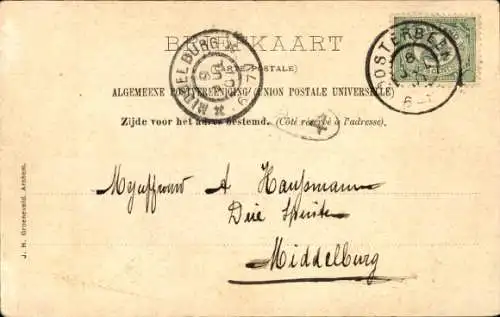 BRIEFKAART
(CARTE POSTALE)
ALGEMEENE POSTVEREENIGING (UNION POSTALE UNIVERSELLE)
Zijde voor het adres bestemd. (Côté réservé à l'adresse).
OOSTERBEEK
MIDDELBURG
4
Mejuffrouw A Hanssmann
Drie
Middelburg
J. H. Groeneveld, Arnhem.